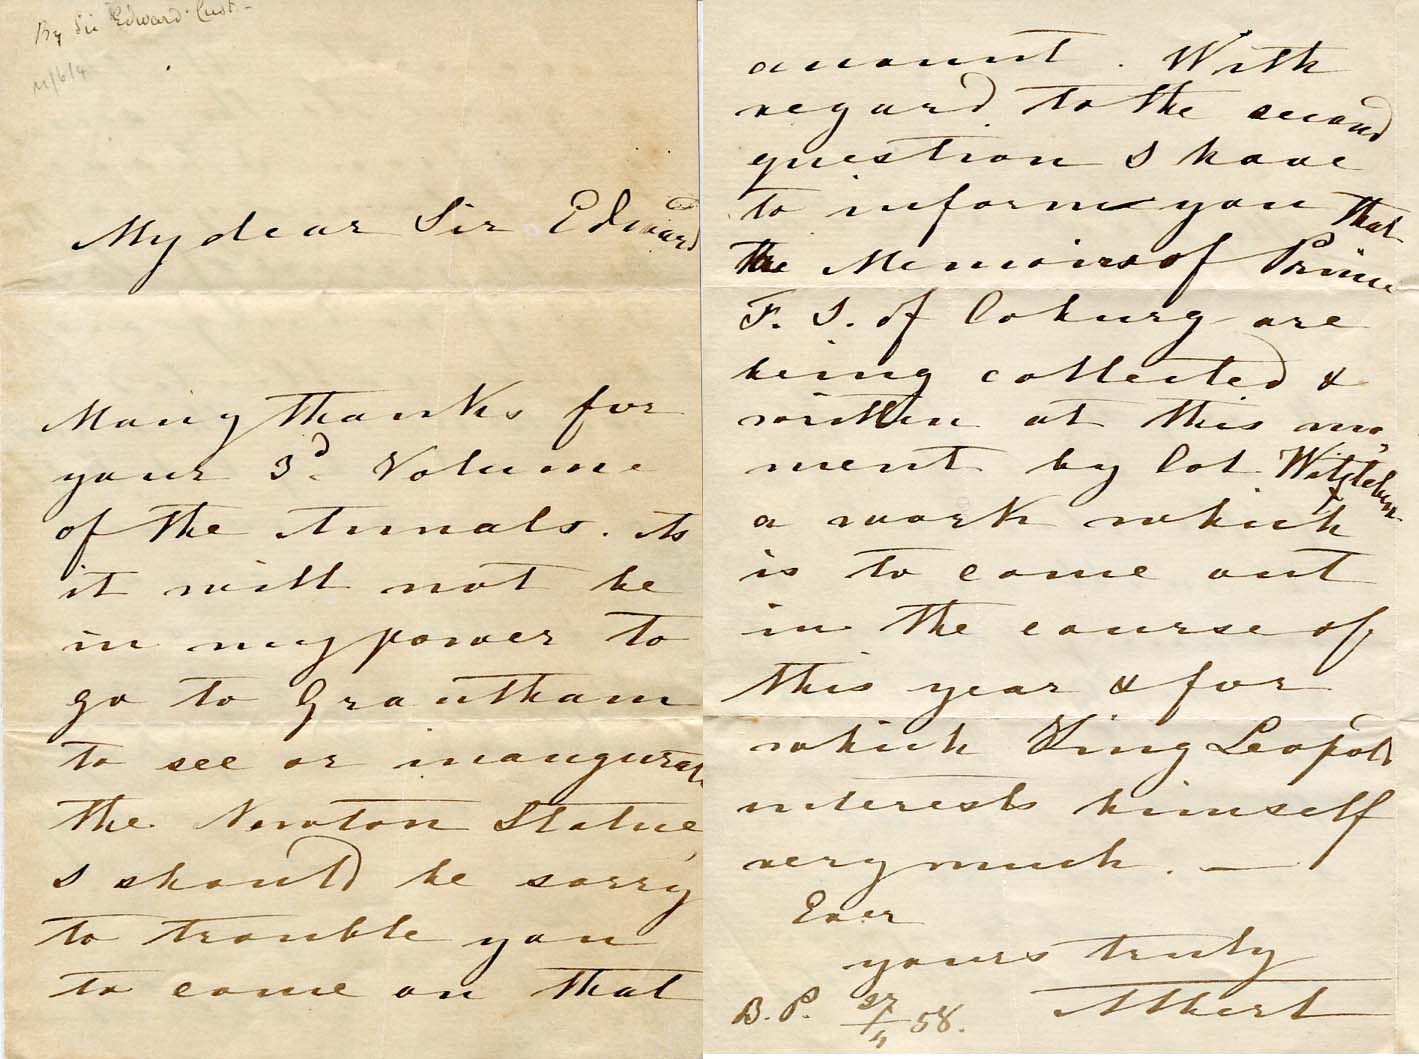 By Sir Edward Cust -
My dear Sir Edward
Many thanks for
your 3d. Volume
of the Annals. As
it will not be
in my power to
go to Grantham
to see or inaugurate
the Newton Statue,
I should be sorry
to trouble you
to come on that
account. With
regard to the second
question I have
to inform you that
the Memoirs of Prince
F. J. of Coburg are
being collected &
written at this mo,
ment by Col.
a work which
is to come out
in the course of
this year & for
which King Leopold
interests himself
very much. —
Ever
yours truly
Albert
B. P. 27/4 58.